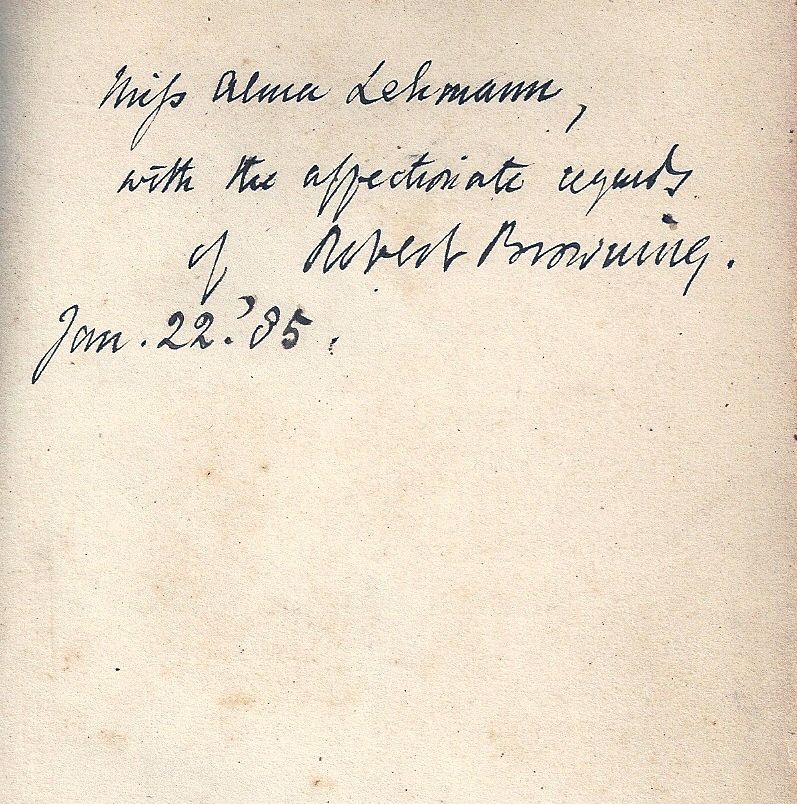 Miss Alma Lehmann,
with the affectionate regards
of Robert Browning.
Jan. 22. '85.